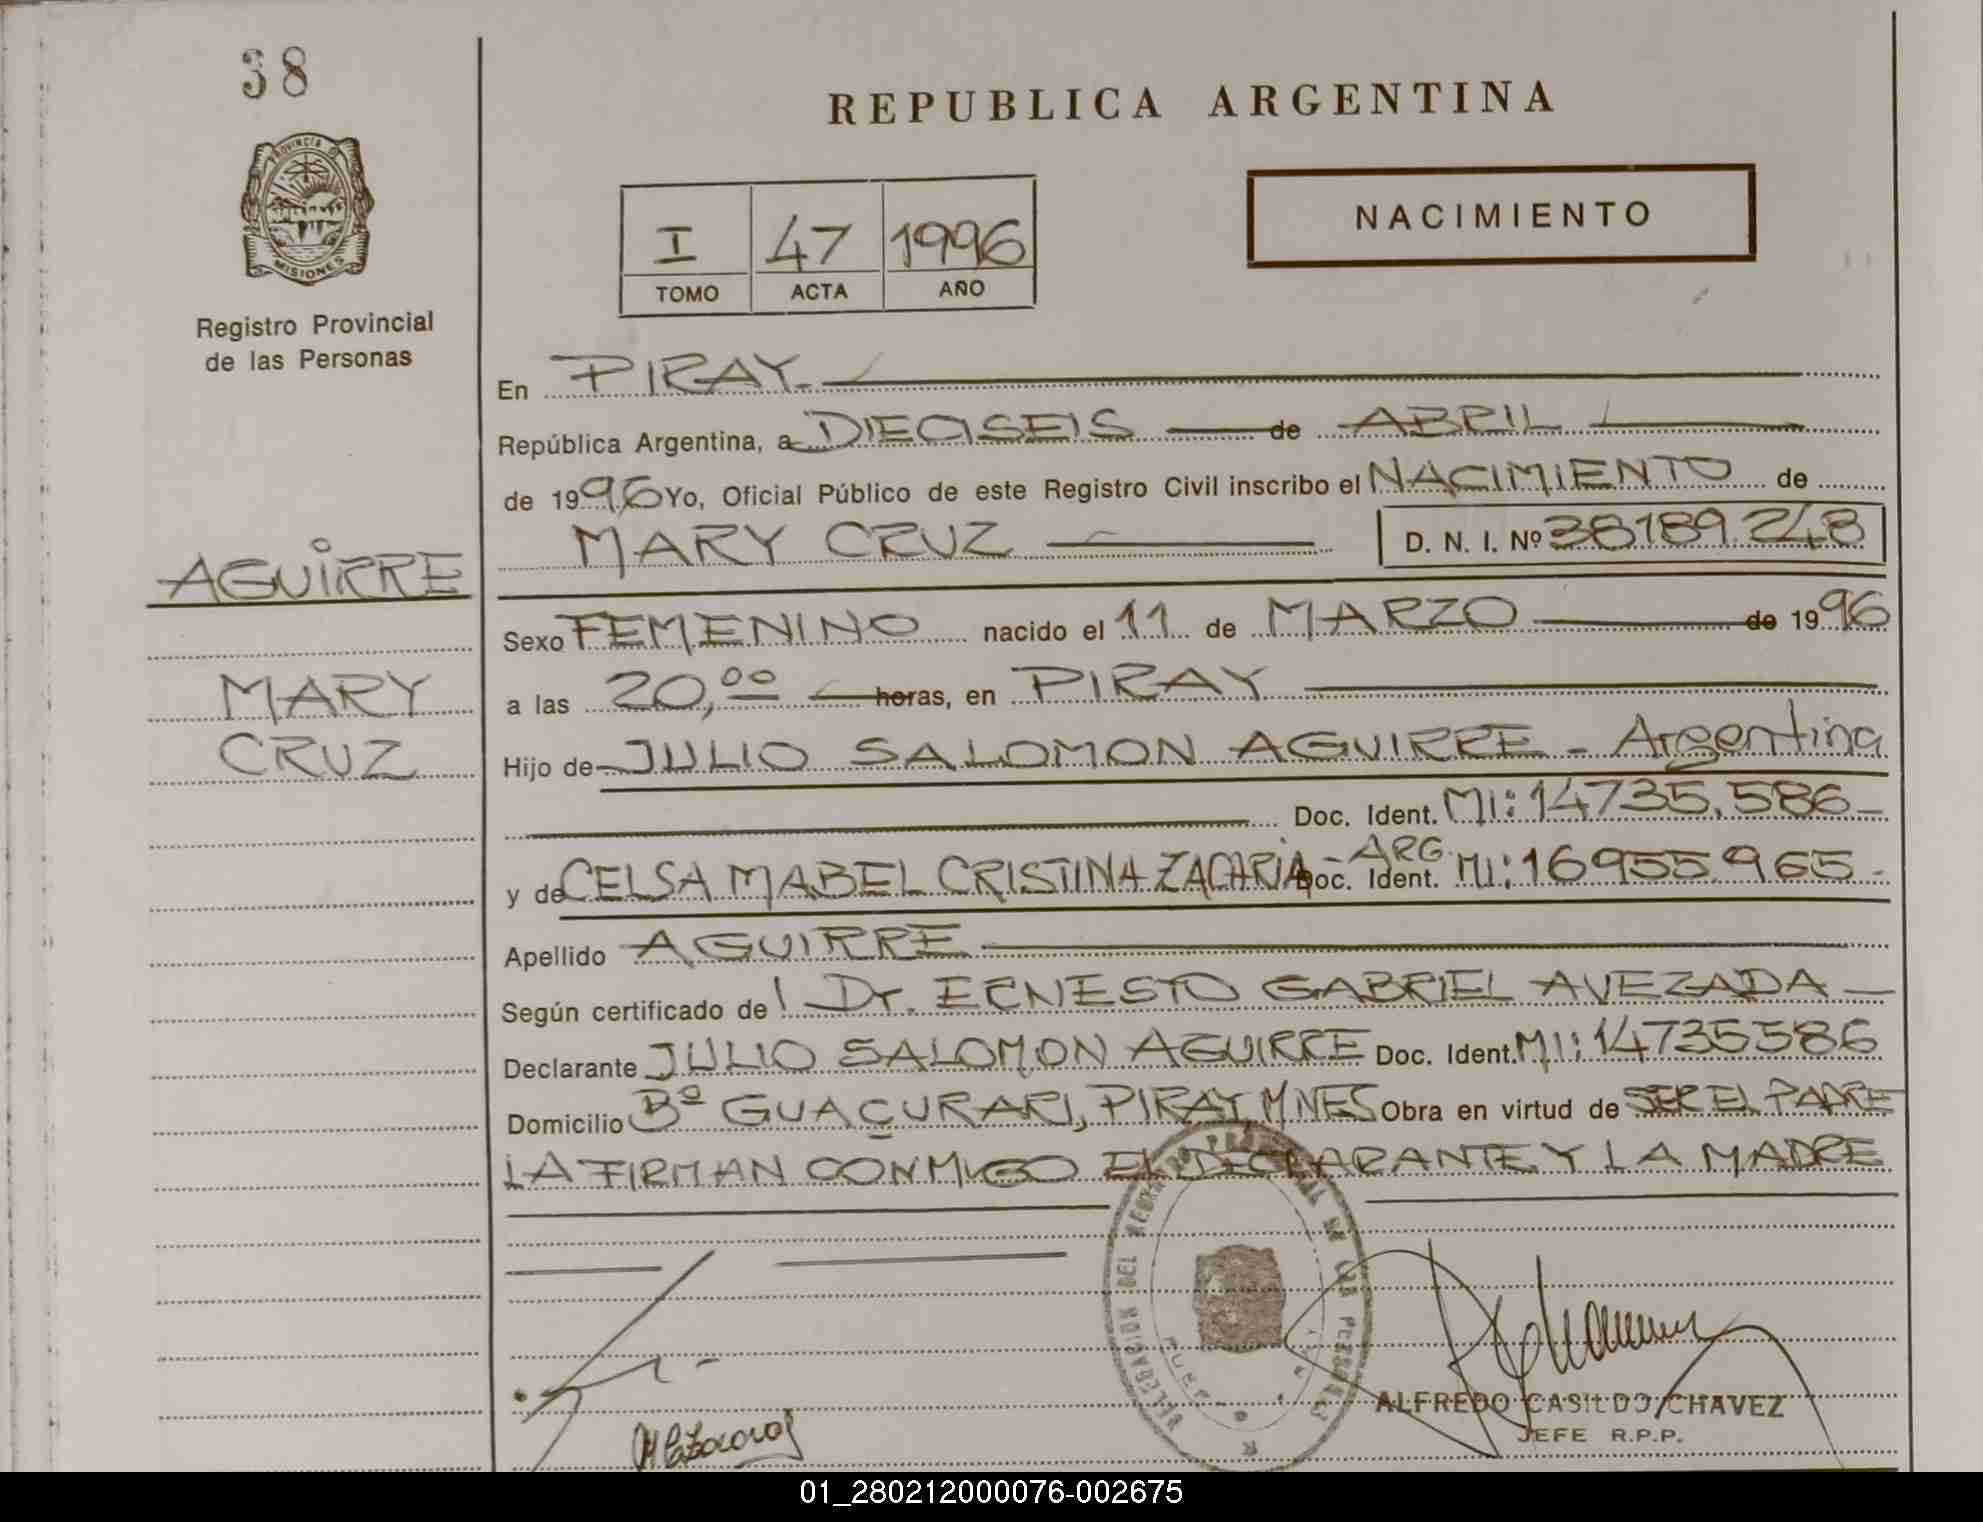 38
PROVINCIA DE
MISIONES
Registro Provincial
de las Personas
AGUIRRE
MARY
CRUZ
REPUBLICA ARGENTINA
I 47 1996
TOMO ACTA AÑO
NACIMIENTO
En PIRAY
República Argentina, a DIECISEIS de ABRIL
de 1996 Yo, Oficial Público de este Registro Civil inscribo el NACIMIENTO de
MARY CRUZ D. N. I. Nº 38189.248
Sexo FEMENINO nacido el 11 de MARZO de 1996
a las 20,00 horas, en PIRAY
Hijo de JULIO SALOMON AGUIRRE - Argentina
Doc. Ident. MI: 14735.586-
y de CELSA MABEL CRISTINA ZACARIA - ARG. Doc. Ident. MI: 16955.965-
Apellido AGUIRRE
Según certificado de l Dr. ERNESTO GABRIEL AVEZADA
Declarante JULIO SALOMON AGUIRRE Doc. Ident. MI: 14735586
Domicilio Bº GUAÇURARI, PIRAY, MNES Obra en virtud de SER EL PADRE
LA FIRMAN CONMIGO EL DECLARANTE Y LA MADRE
DELEGACION DEL REGISTRO PROVINCIAL DE LAS PERSONAS
ALFREDO CASILDO CHAVEZ
JEFE R.P.P.
01_280212000076-002675